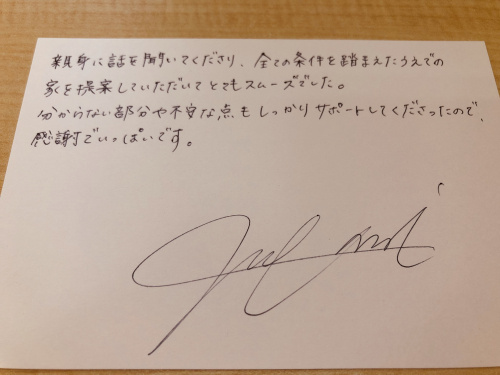 親身に話を聞いてくださり、全ての条件を踏まえたうえでの
家を提案していただいてとてもスムーズでした。
分からない部分や不安な点もしっかりサポートしてくださったので、
感謝でいっぱいです。